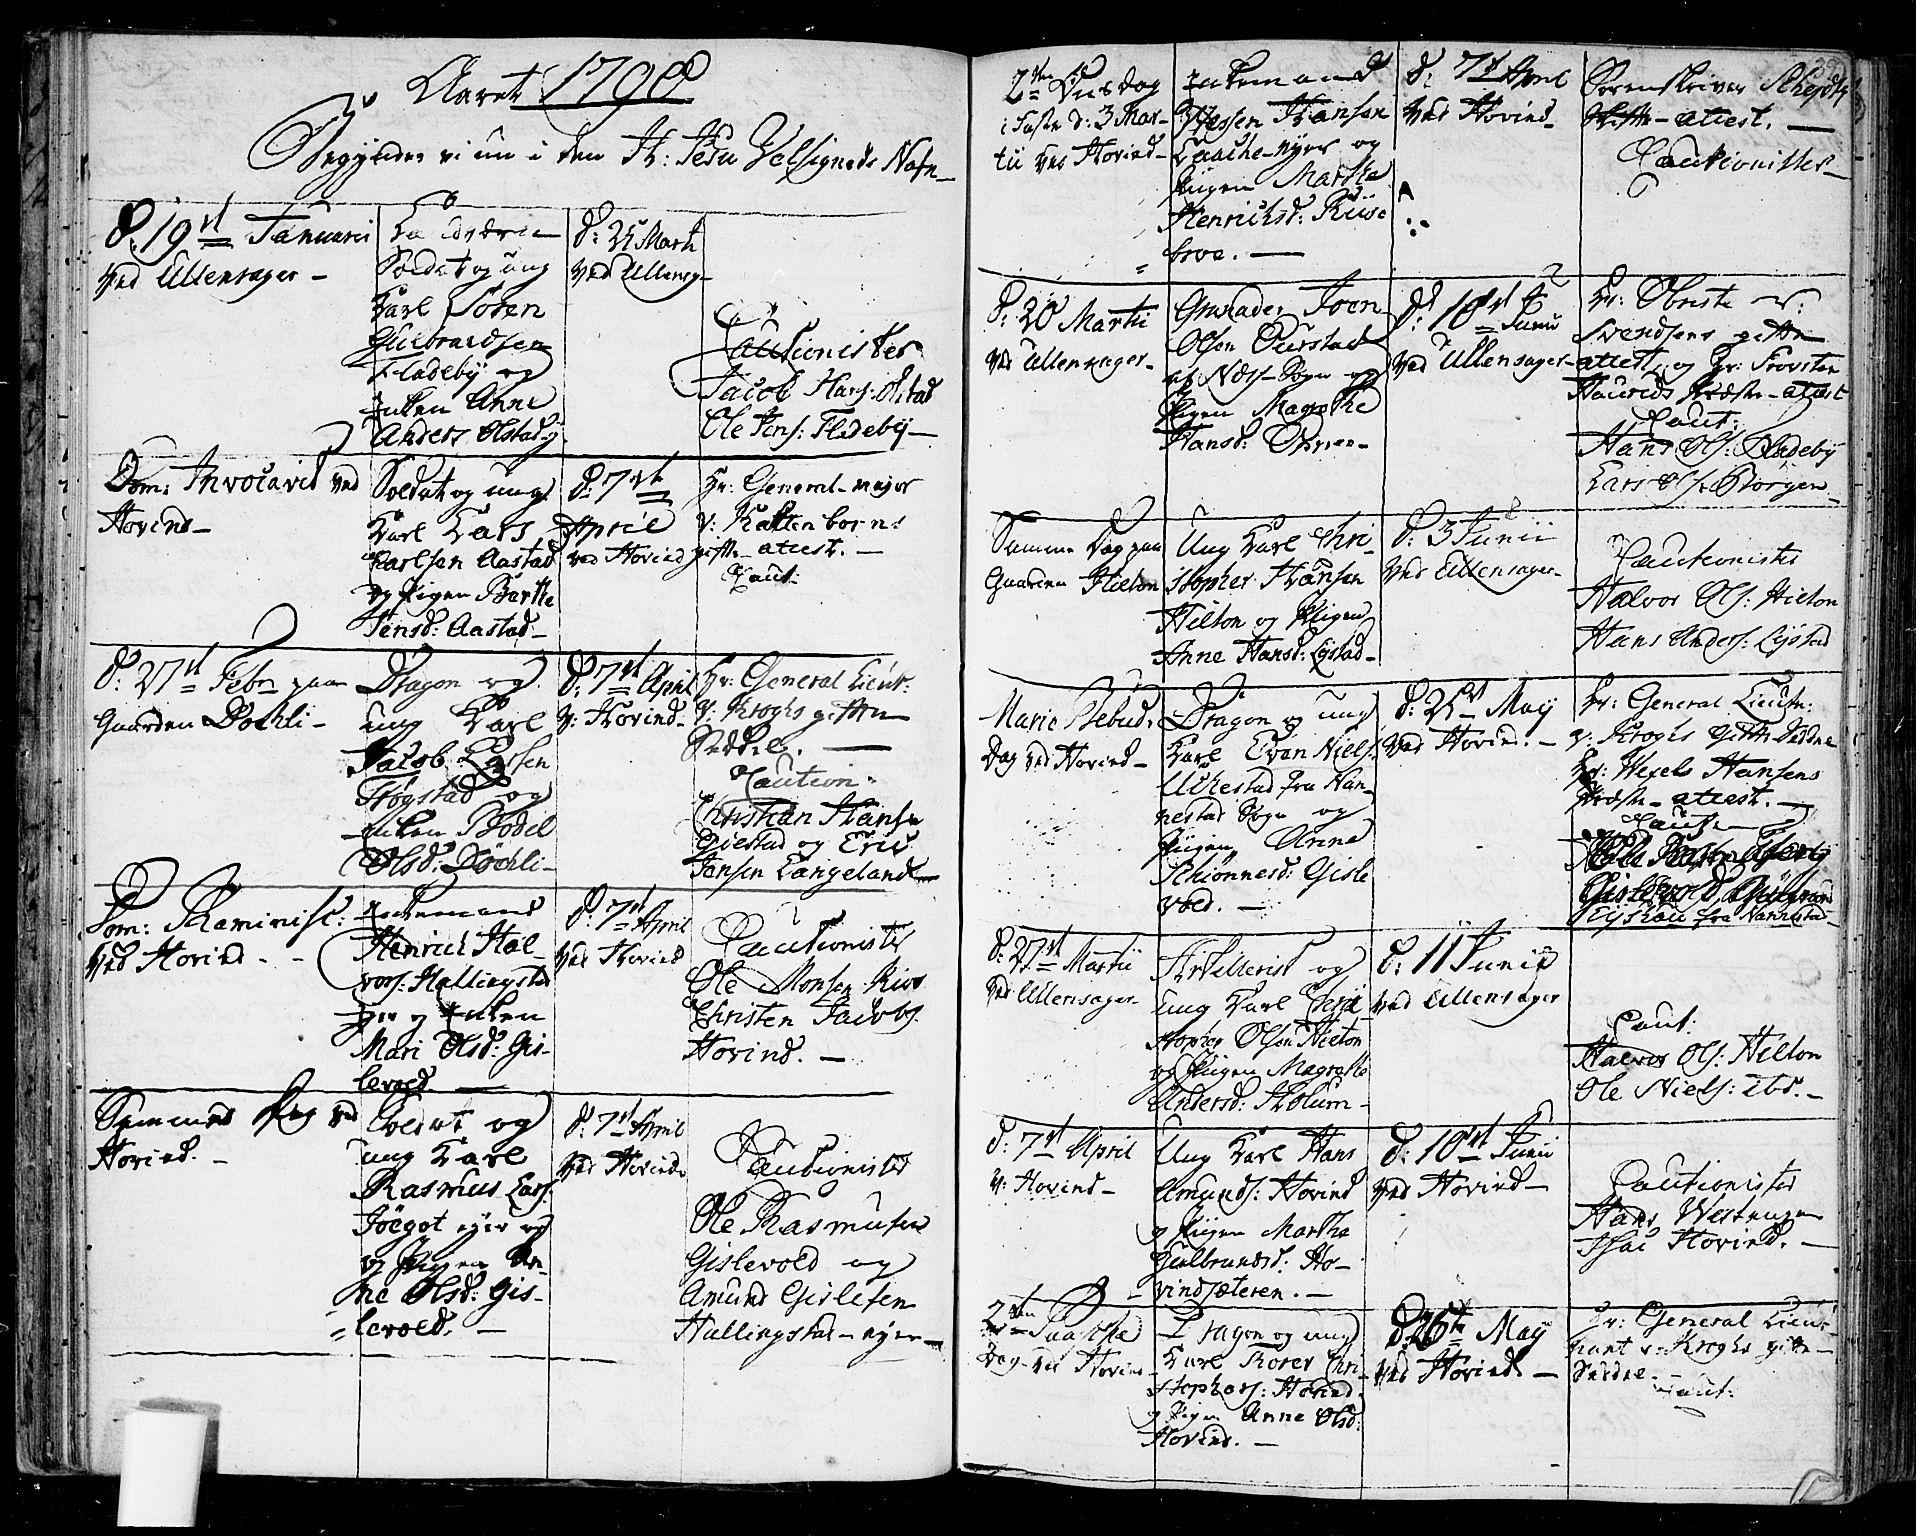 Aaret 1790
Begynder vi nu i den H: Jesu Velsignede Nafn
d. 19de Januarii
ved Ullensager
Soldat og ung
Karl Sören
Gulbrandsen
Fladeby og
Enken Anne
Anders Olstad
d: 25 Marti
ved Ullensag
Cautionister
Jacob Hans: Olstad
Ole Jens: Fladeby
Dom: Invocavit ved
Hovind
Soldat og ung
Karl Lars
Karlsen Aastad
og Pigen Barthe
Jensd: Aastad
d: 7de
April
ved Hovind
Hr: General-major
v: Kaltenborns
gifte-attest.
Caut:
d: 27de Febr paa
Gaarden Döchli
Dragon og
ung Karl
Jacob Larsen
Trögstad og
Enken Bodel
Olsd: Döchli
d: 7de April
v: Hovind
Hr: General Lieut:
v: Kroghs gifte
Seddel.
Caution:
Christian Hansen
Gielstad og Eric
Jansen Langeland
Dom: Reminisc:
ved Hovind
Enkemand
Henrich Hal-
vors: Hallingstad
eyer og Enken
Mari Olsd: Gis-
levold
d: 7de April
ved Hovind
Cautionister
Ole Monsen Riis
Christen Jacobs
Hovind.
Samme Dag ved
Hovind.
Soldat og
ung Karl
Rasmus Lars:
eyer og
og Pigen An-
ne Olsd: Gis-
levold.
d: 7de April
ved Hovind
Cautionister
Ole Rasmusen
Gislevold og
Amund Gislesen
Hallingstad-eyer
2den Onsdag
i Faste d: 3 Mar-
tii ved Hovind
Enkemand
Hansen
Laache-eyer og
Pigen Martha
Henrichsd: Riise
broe.
d: 7de April
ved Hovind
Sorenskriver
Skifte-attest.
Cautionister
d: 20 Martii
ved Ullensager
Grenader Joen
Olsen Ourstad
af Næs-Sogn og
Pigen Magrethe
Hansd:
d: 10de Junii
ved Ullensager
Hr: Obriste v:
Svendsens gifte
attest, og Hr: Provsten
Præste-attest
Caut:
Hans Ols: Fladeby
Lars Ols: Borgen
Samme Dag paa
Gaarden Hilton
Ung Karl Chri-
stopher Hansen
Hilton og Pigen
Anne Hansd: Lystad
d: 3 Junii
ved Ullensager
Cautionister
Halvor Ols: Hilton
Hans Anders: Lystad
Marie Bebud:
Dag ved Hovind
Dragon og ung
Karl Evan Niels:
Ukkestad fra Nan-
nestad Sogn og
Pigen Anne
Schiönnesd: Gisle
vold.
d: 25de May
ved Hovind.
Hr: General Lieutn:
v: Kroghs Gifte-Seddel
Hr: Wexels Hansens
Præste-attest.
Caut
Gislevold,
fra Nannestad
d: 27de Martii
ved Ullensager
Artillerist og
ung Karl Chri-
stopher Olsen Hilton
og Pigen Magrethe
Andersd: Holum
d: 11 Junii
ved Ullensager
Caut:
Halvor Ols: Hilton
Ole Niels: ibd.
d: 7de April
v: Hovind
Ung Karl Hans
Amunds: Hovind
og Pigen Martha
Gulbrandsd: Ho-
vindsæteren.
d: 10de Junii
ved Hovind
Cautionister
Hans Westengen
Isac Hovind.
2den Paaske
Dag ved Hovind
Dragon og ung
Karl Torer Chri-
stophers: Hovind
og Pigen Anne Olsd:
Hovind.
d. 26de May
ved Hovind
Hr: General Lieut-
nant v: Kroghs gifte-
Seddel
Caut: